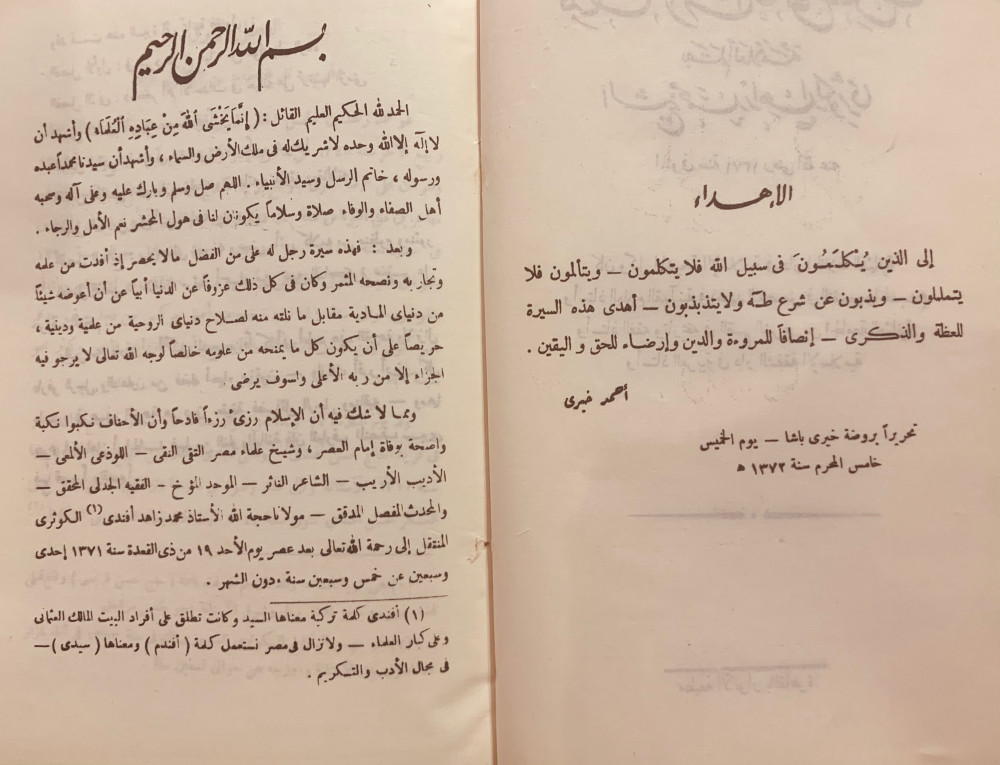 الإهداء
إلى الذين يُكلَمُونَ فى سبيل الله فلا يتكلمون — ويتألمون فلا
يتململون — ويذبون عن شرع طـه ولا يتذبذبون — أهدى هذه السيرة
للعظة والذكرى — إنصافاً للمروءة والدين وإرضاء للحق واليقين .
أحمد خيرى
تحريراً بروضة خيرى باشا — يوم الخميس
خامس المحرم سنة ١٣٧٢ ه
بسم الله الرحمن الرحيم
الحمد لله الحكيم العليم القائل : ( إِنَّمَا يَخْشَى اللهَ مِنْ عِبَادِهِ الْعُلَمَاءُ ) وأشهد أن
لا إله إلا الله وحده لا شريك له فى ملك الأرض والسماء ، وأشهد أن سيدنا محمداً عبده
ورسوله ، خاتم الرسل وسيد الأنبياء . اللهم صل وسلم وبارك عليه وعلى آله وصحبه
أهل الصفاء والوفاء صلاة وسلاماً يكونان لنا فى هول المحشر نعم الأمل والرجاء .
وبعد : فهذه سيرة رجل له على من الفضل مالا يحصر إذ أفدت من علمه
وتجاربه ونصحه المثمر وكان فى كل ذلك عزوفاً عن الدنيا أبياً عن أن أعوضه شيئاً
من دنياى المادية مقابل ما نلته منه لصلاح دنياى الروحية من علمية ودينية ،
حريصاً على أن يكون كل ما يمنحه من علومه خالصاً لوجه الله تعالى لا يرجو فيه
الجزاء إلا من ربه الأعلى ولسوف يرضى .
ومما لا شك فيه أن الإسلام رزئ رزءاً فادحاً وأن الأحناف نكبوا نكبة
واضحة بوفاة إمام العصر ، وشيخ علماء مصر التقى النقى — اللوذعى الألمعى —
الأديب الأريب — الشاعر الناثر — الموحد المؤرخ — الفقيه الجدلى المحقق —
والمحدث المفصل المدقق — مولانا حجة الله الأستاذ محمد زاهد أفندى (١) الكوثرى
المنتقل إلى رحمة الله تعالى بعد عصر يوم الأحد ١٩ من ذى القعدة سنة ١٣٧١ إحدى
وسبعين عن خمس وسبعين سنة دون الشهر .
(١) أفندى كلمة تركية معناها السيد وكانت تطلق على أفراد البيت المالك العثمانى
وعلى كبار العلماء — ولا تزال فى مصر نستعمل كلمة ( أفندم ) ومعناها ( سيدى ) —
فى مجال الأدب والتكريم .